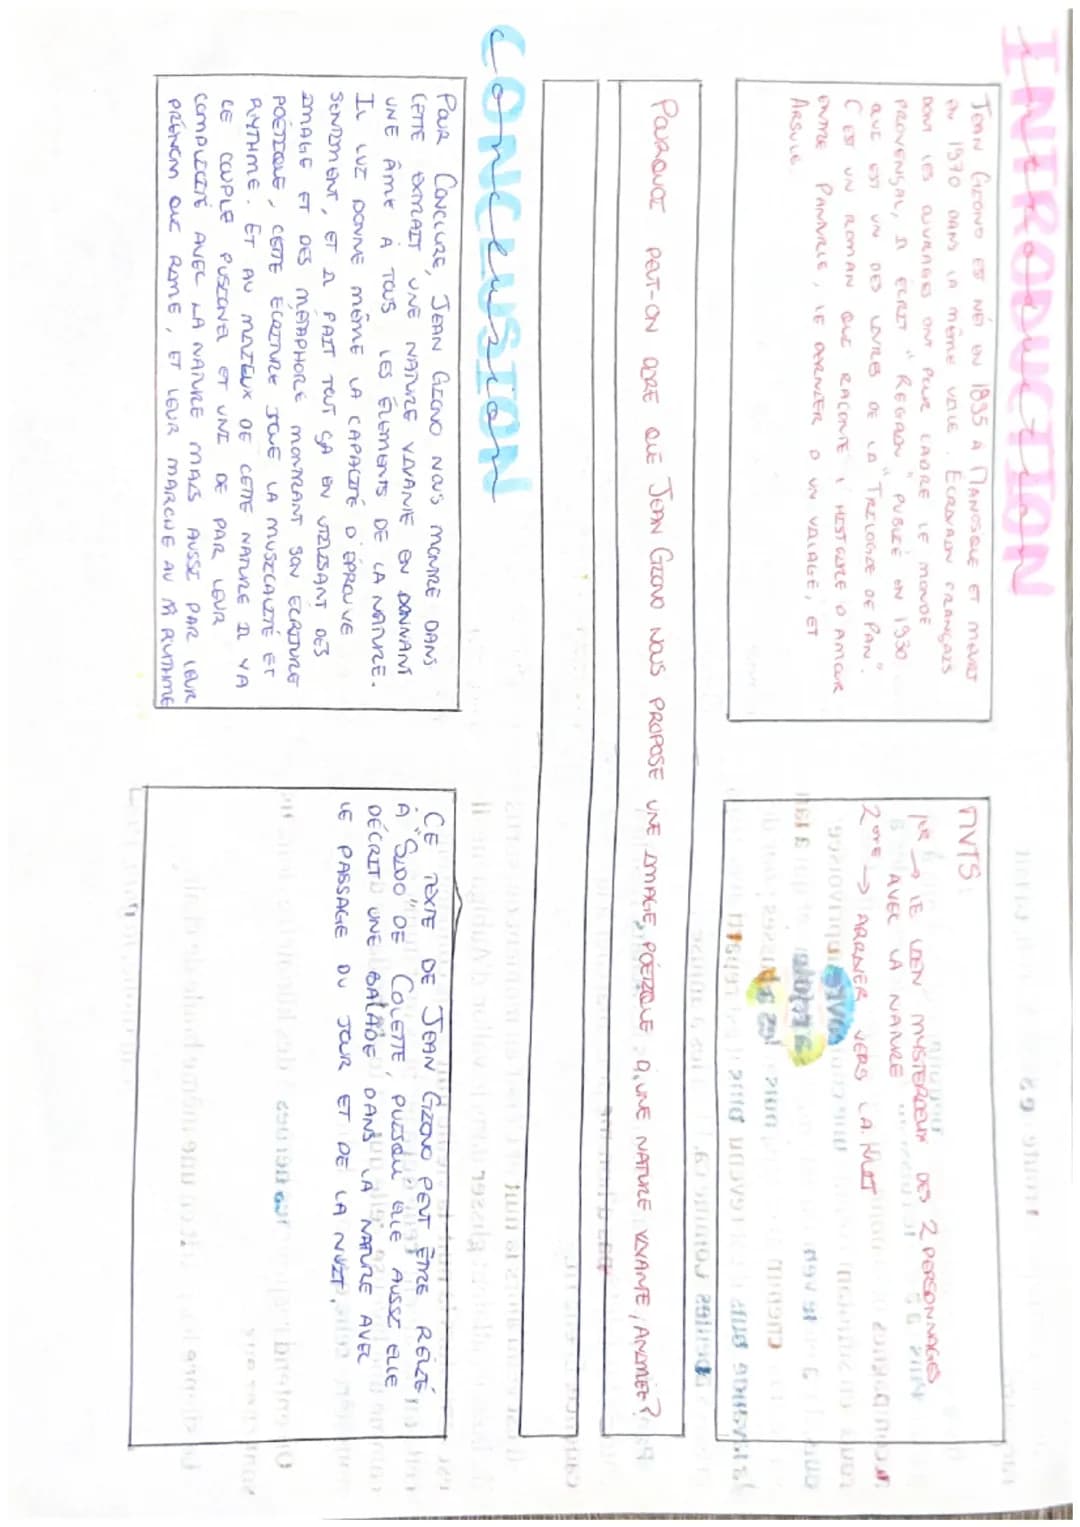 INTRODUCTION
JEAN GIONO EST NÉ EN 1895 À MANOSQUE ET MEURT
EN 1970 DANS LA MÊME VILLE. ÉCRIVAIN FRANÇAIS
DONT LES OUVRAGES ONT POUR CADRE LE MONDE
PROVENÇAL, IL ÉCRIT "REGAIN" PUBLIÉ EN 1930
QUI EST UN DES LIVRES DE LA "TRILOGIE DE PAN".
C'EST UN ROMAN QUI RACONTE L'HISTOIRE D'AMOUR
ENTRE PANTURLE, LE DERNIER D'UN VILLAGE, ET
ARSULE.
MVTS:
1ER → LE LIEN MYSTERIEUX DES 2 PERSONNAGES
AVEC LA NATURE
2ÈME → ARRIVER VERS LA NUIT
POURQUOI PEUT-ON DIRE QUE JEAN GIONO NOUS PROPOSE UNE IMAGE POÉTIQUE D'UNE NATURE VIVANTE, ANIMÉE?
CONCLUSION
POUR CONCLURE, JEAN GIONO NOUS MONTRE DANS
CETTE EXTRAIT UNE NATURE VIVANTE EN DONNANT
UNE ÂME A TOUS LES ÉLÉMENTS DE LA NATURE.
IL LUI DONNE MÊME LA CAPACITÉ D'ÉPROUVE
SENTIMENT, ET IL FAIT TOUT ÇA EN UTILISANT DES
IMAGE ET DES MÉTAPHORE MONTRANT SON ÉCRITURE
POÉTIQUE, CETTE ÉCRITURE JOUE LA MUSICALITÉ ET
RYTHME. ET AU MILIEUX DE CETTE NATURE IL Y A
LE COUPLE FUSIONEL ET UNI DE PAR LEUR
COMPLICITÉ AVEC LA NATURE MAIS AUSSI PAR LEUR
PRÉNOM QUI RIME, ET LEUR MARCHE AU M RYTHME
CE TEXTE DE JEAN GIONO PEUT ÊTRE RELIÉ
À "SIDO" DE COLETTE, PUISQU'ELLE AUSSI ELLE
DÉCRIT UNE BALADE DANS LA NATURE AVEC
LE PASSAGE DU JOUR ET DE LA NUIT.